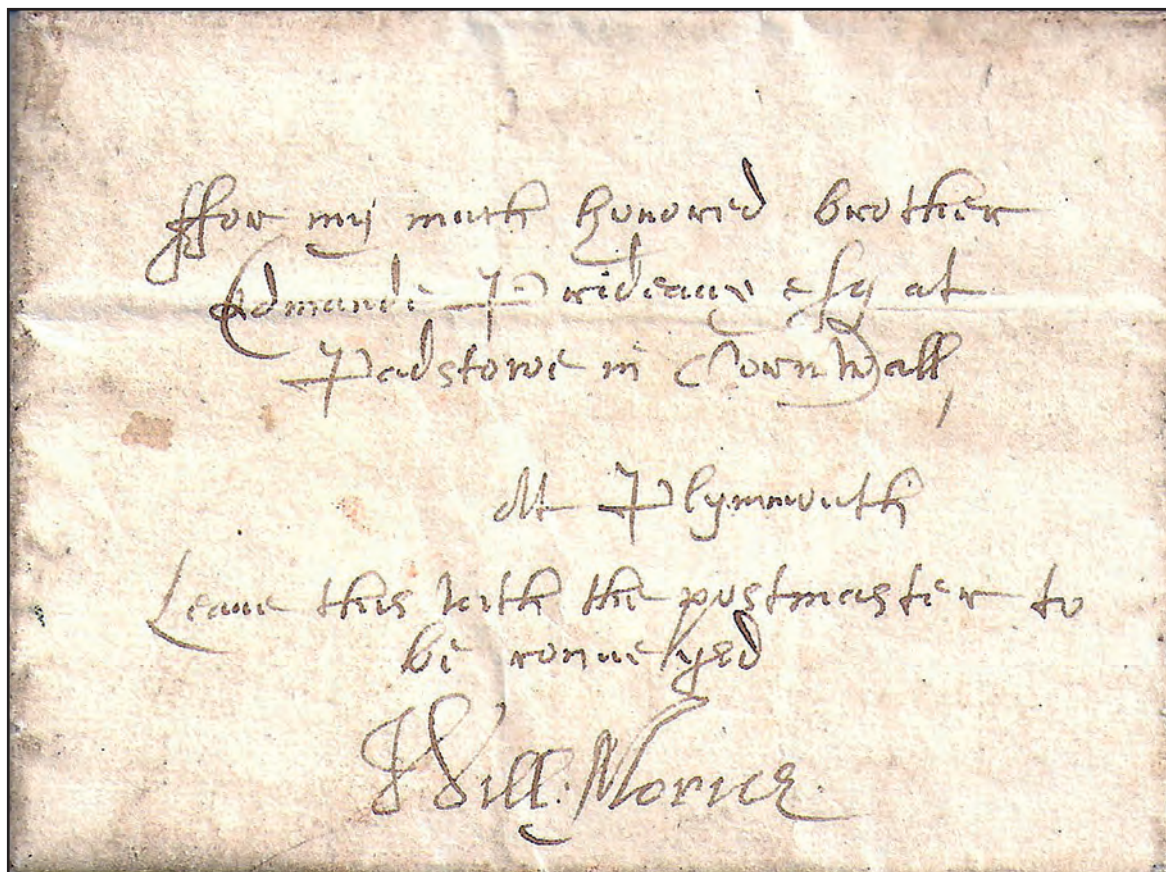 ffor my much honored brother
Edmande Prideaux esq at
Padstowe in Cornwall,
At Plymmouth
Leaue this with the postmaster to
be conueyed
Will: Morice.